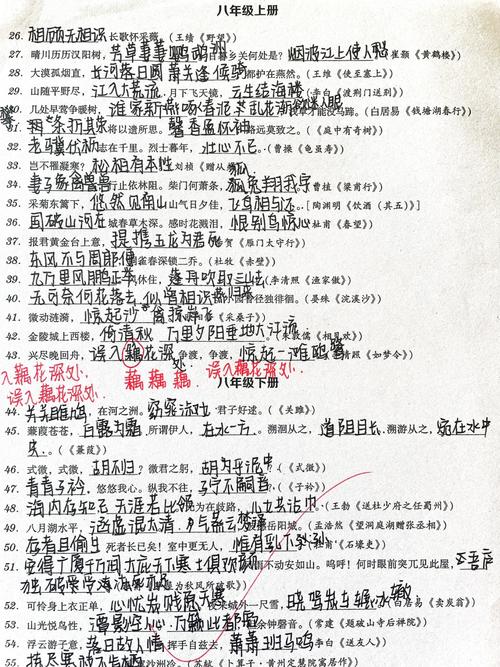 八年级上册
26. 相顾无相识,长歌怀采薇。(王绩《野望》)
27. 晴川历历汉阳树,芳草萋萋鹦鹉洲。日暮乡关何处是?烟波江上使人愁。(崔颢《黄鹤楼》)
28. 大漠孤烟直,长河落日圆。萧关逢候骑,都护在燕然。(王维《使至塞上》)
29. 山随平野尽,江入大荒流。月下飞天镜,云生结海楼。(李白《渡荆门送别》)
30. 几处早莺争暖树,谁家新燕啄春泥。乱花渐欲迷人眼,浅草才能没马蹄。(白居易《钱塘湖春行》)
31. 将以遗所思。馨香盈怀袖,路远莫致之。(《庭中有奇树》)
32. 老骥伏枥,志在千里。烈士暮年,壮心不已。(曹操《龟虽寿》)
33. 岂不罹凝寒?松柏有本性。(刘桢《赠从弟》)
34. 妻子象禽兽,行止依林阻。柴门何萧条,狐兔翔我宇。(曹植《梁甫行》)
35. 采菊东篱下,悠然见南山。山气日夕佳,飞鸟相与还。[陶渊明《饮酒(其五)》]
36. 国破山河在,城春草木深。感时花溅泪,恨别鸟惊心。(杜甫《春望》)
37. 报君黄金台上意,提携玉龙为君死。(李贺《雁门太守行》)
38. 东风不与周郎便,铜雀春深锁二乔。(杜牧《赤壁》)
39. 九万里风鹏正举。风休住,蓬舟吹取三山去!(李清照《渔家傲》)
40. 无可奈何花落去,似曾相识燕归来。小园香径独徘徊。(晏殊《浣溪沙》)
41. 微动涟漪,惊起沙禽掠岸飞。(欧阳修《采桑子》)
42. 金陵城上西楼,倚清秋。万里夕阳垂地大江流。(朱敦儒《相见欢》)
43. 兴尽晚回舟,误入藕花深处。争渡,争渡,惊起一滩鸥鹭。(李清照《如梦令》)
误入藕花深处. 藕 藕 藕 误入藕花深处.
误入藕花深处.
八年级下册
44. 关关雎鸠,在河之洲。窈窕淑女,君子好逑。(《关雎》)
45. 蒹葭苍苍,白露为霜。所谓伊人,在水一方。溯洄从之,道阻且长。溯游从之,宛在水中
央。(《蒹葭》)
46. 式微,式微,胡不归?微君之躬,胡为乎泥中?(《式微》)
47. 青青子衿,悠悠我心。纵我不往,子宁不嗣音?(《子衿》)
48. 海内存知己,天涯若比邻。无为在歧路,儿女共沾巾。(王勃《送杜少府之任蜀州》)
49. 八月湖水平,涵虚混太清。气蒸云梦泽,波撼岳阳城。(孟浩然《望洞庭湖赠张丞相》)
50. 存者且偷生,死者长已矣!室中更无人,惟有乳下孙。(杜甫《石壕吏》)
51. 安得广厦千万间,大庇天下寒士俱欢颜,风雨不动安如山。呜呼!何时眼前突兀见此屋,吾庐
独破受冻死亦足!(杜甫《茅屋为秋风所破歌》)
52. 可怜身上衣正单,心忧炭贱愿天寒。夜来城外一尺雪,晓驾炭车辗冰辙。(白居易《卖炭翁》)
53. 山光悦鸟性,潭影空人心。万籁此都寂,但余钟磬音。(常建《题破山寺后禅院》)
54. 浮云游子意,落日故人情。挥手自兹去,萧萧班马鸣。(李白《送友人》)
55. 拣尽寒枝不肯栖,寂寞沙洲冷。(苏轼《卜算子·黄州定慧院寓居作》)